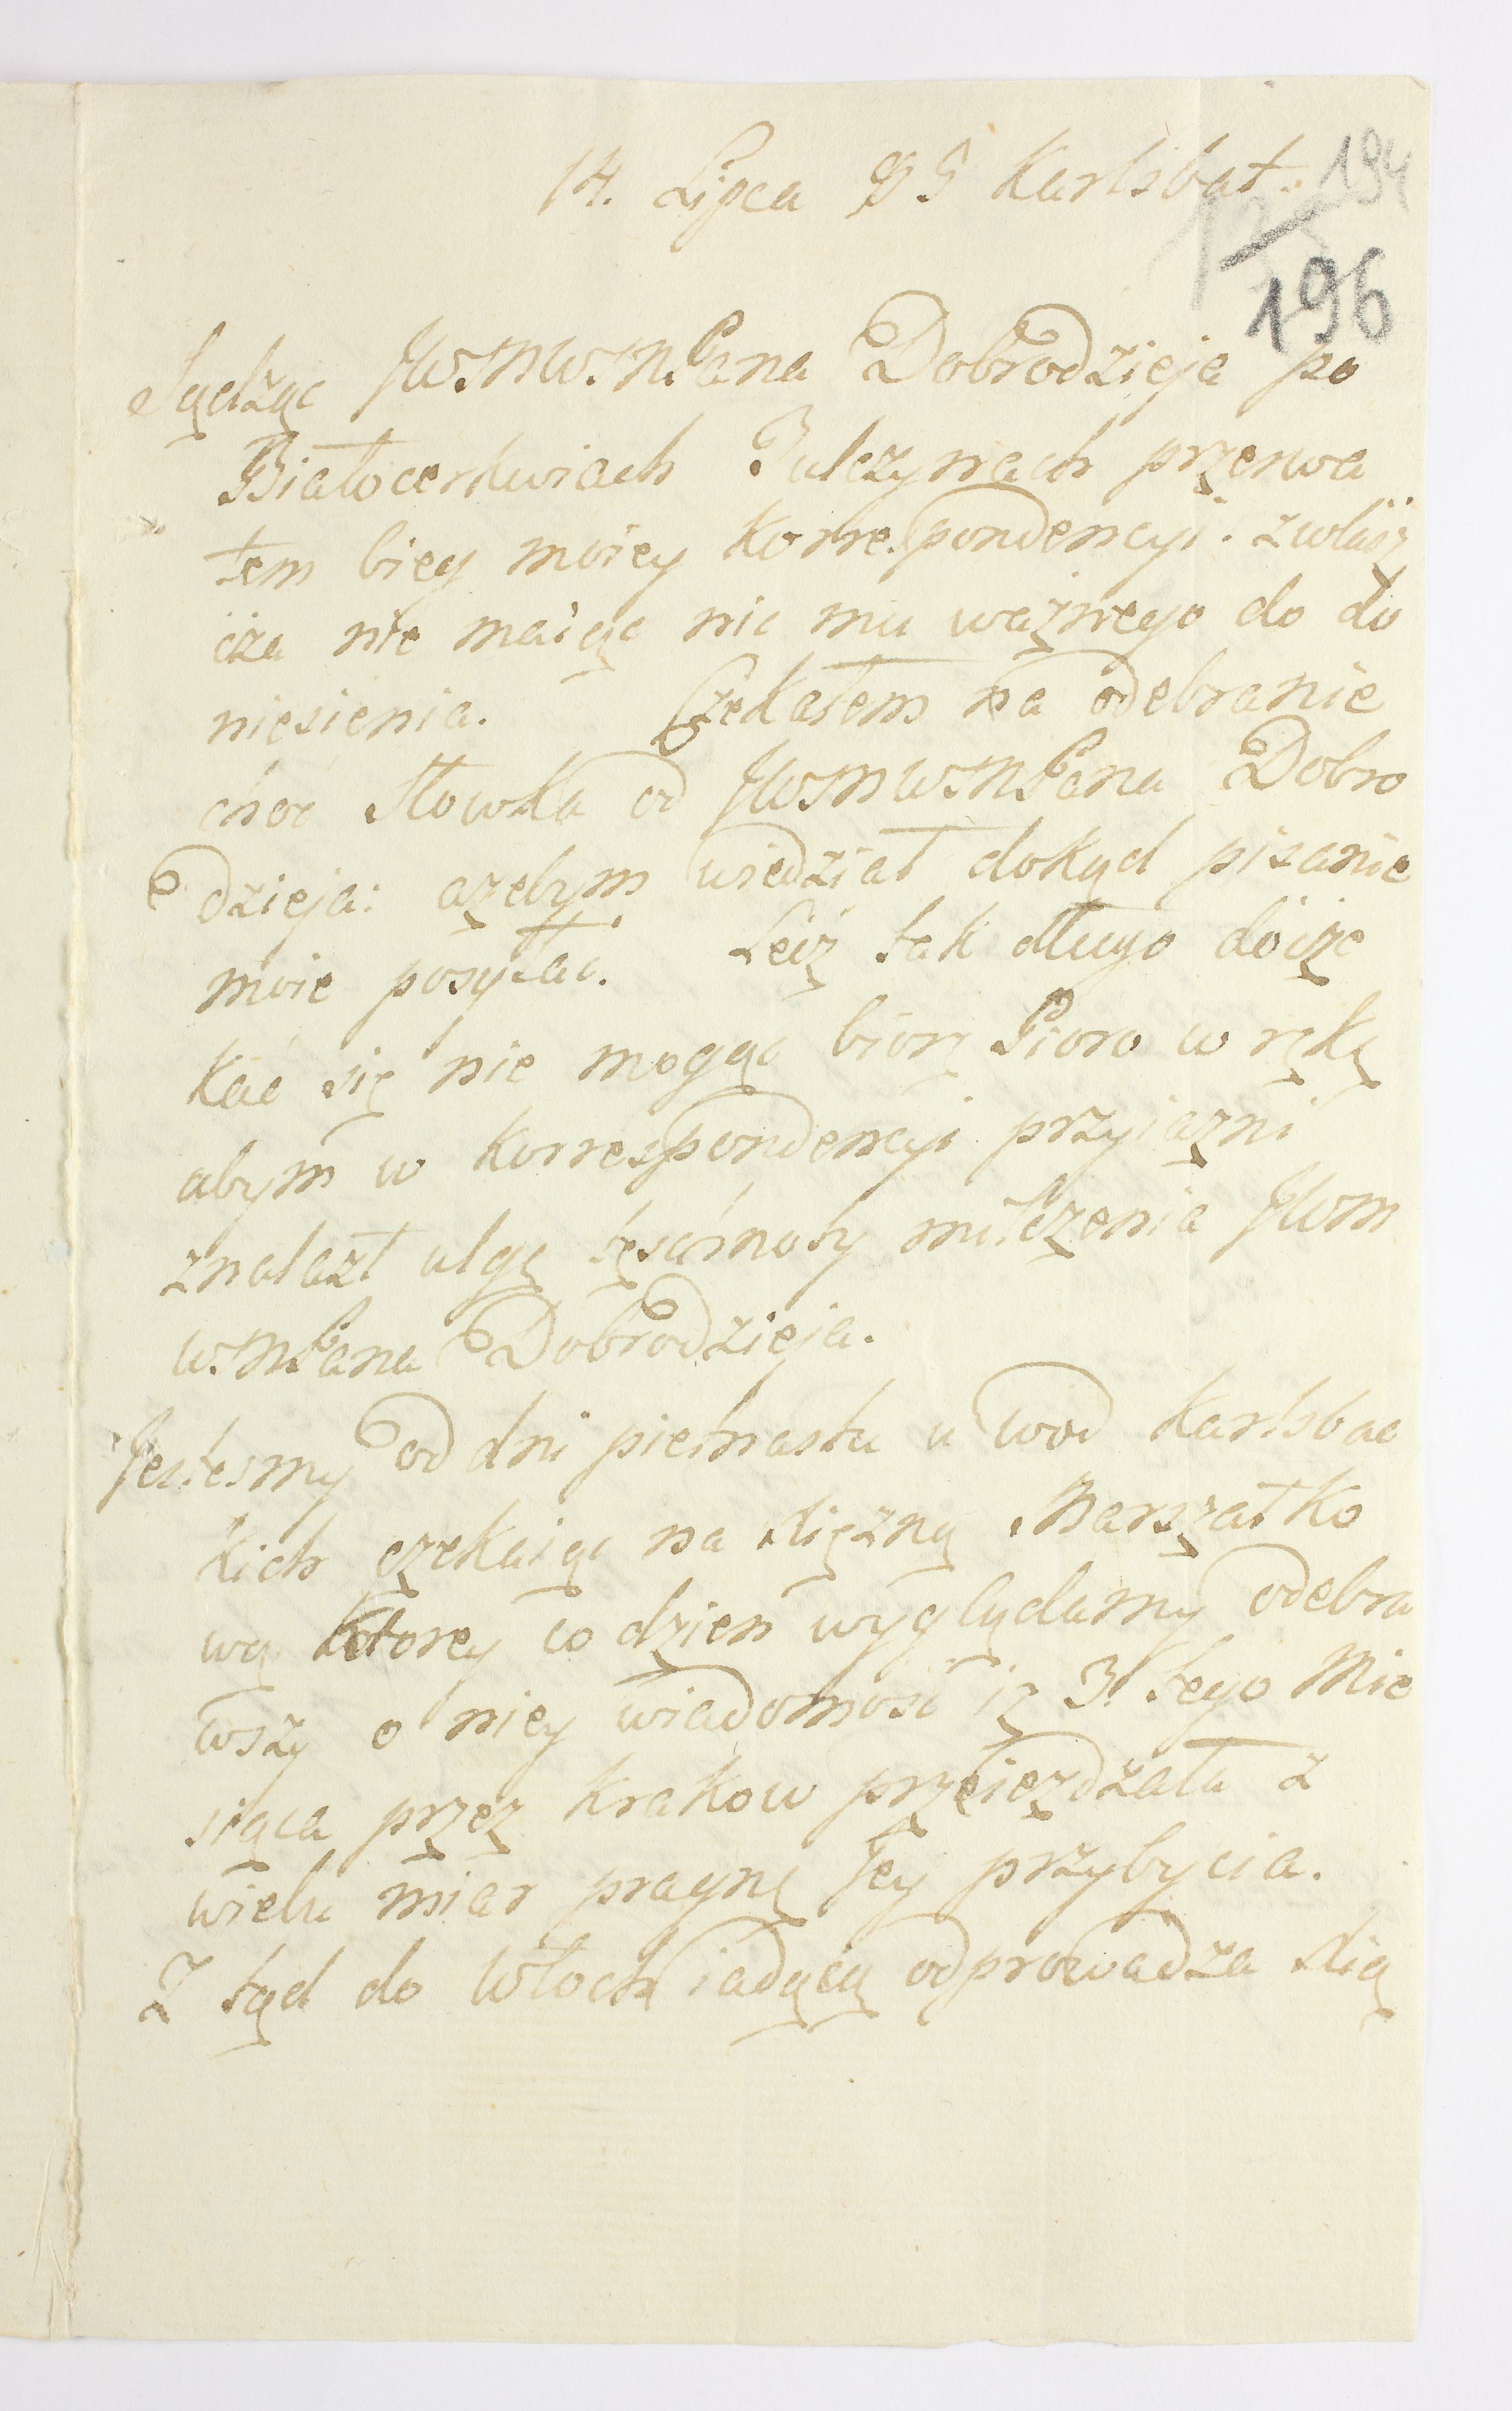 14. Lipca 85 Karlsbat. 194
196
Sądząc JWWMWMPana Dobrodzieja po
Białocerkwiach Tulczynach przerwa
łem bieg moiey korrespondencyi. zwłasz
cza nie maiąc nic mu ważnego do do
niesienia. Czekałem na odebranie
choc słowka od JWMWMPana Dobro
dzieja: ażebym wiedział dokąd pisanie
moie posyłac. Lecz tak długo docze
kać się nie mogąc biorę Pioro w rękę
abym w korrespondencyi przyiazni
znalazł ulgę tęsknoty milczenia JWM
WMPana Dobrodzieja.
Jestesmy od dni pietnastu u wod Karlsbac
kich czekaiąc na Xiężnę Marszałko
wą ktorey co dzien wyglądamy odebra
wszy o niey wiadomosc iz 3. tego Mie
siąca przez Krakow przeiezdzała z
wielu miar pragnę Jey przybycia.
Z tąd do Włoch iadącą odprowadza Xią